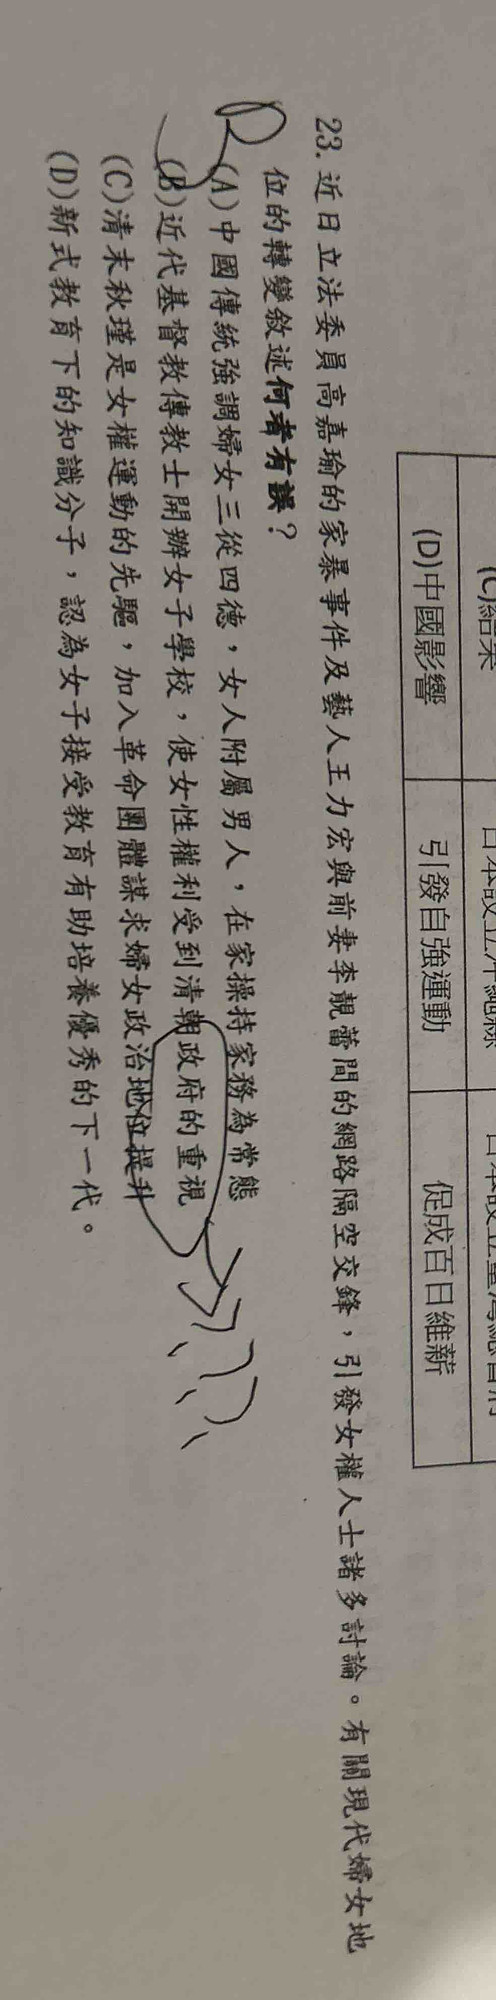 (C)結果
(D)中國影響 引發自強運動 促成百日維新
23. 近日立法委員高嘉瑜的家暴事件及藝人王力宏與前妻李靚蕾間的網路隔空交鋒，引發女權人士諸多討論。有關現代婦女地
位的轉變敘述何者有誤？
(A)中國傳統強調婦女三從四德，女人附屬男人，在家操持家務為常態
(B)近代基督教傳教士開辦女子學校，使女性權利受到清朝政府的重視
(C)清末秋瑾是女權運動的先驅，加入革命團體謀求婦女政治地位提升
(D)新式教育下的知識分子，認為女子接受教育有助培養優秀的下一代。
???